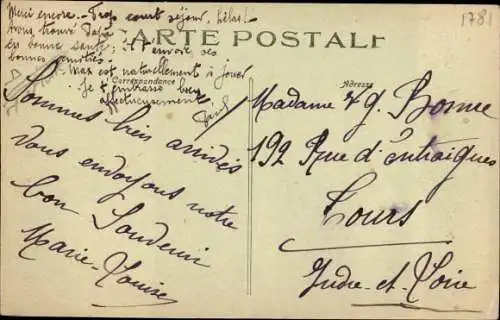 Merci encore. Trop court séjour, hélas!
Avons trouvé Papa
en bonne santé; il t'envoie ses
bonnes amitiés.
Max est naturellement à jouer
Je t'embrasse bien
affectueusement
CARTE POSTALE
1781
Correspondance
Adresse
Sommes bien arrivés
vous envoyons notre
bon Souvenir
Marie-Louise
Madame
192 Rue d'Entraigues
Tours
Indre-et-Loire